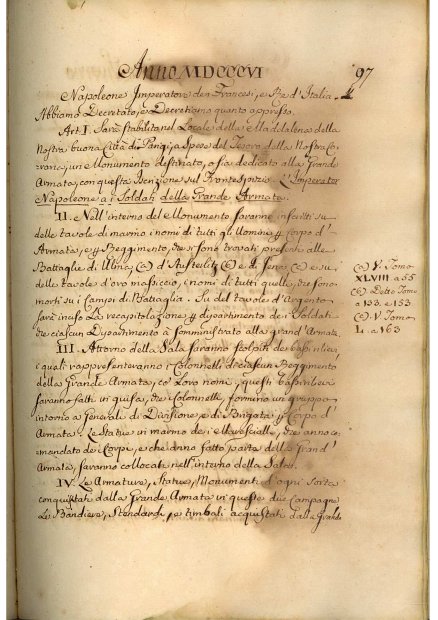 Anno MDCCCVI
97
Napoleone Imperatore dei Francesi, e Re d'Italia
Abbiamo Decretato, e Decretiamo quanto appresso
Art. I. Sarà stabilita nel Locale della Maddalena della
Nostra buona Città di Parigi, a Spese del Tesoro della Nostra Co-
rona, un Monumento destinato, o sia dedicato alla Grande
Armata, con questa Iscrizione sul Frontespizio L'Imperator
Napoleone ai Soldati della Grande Armata.
II. Nell'interno del Monumento saranno inscritti su
delle tavole di marmo i nomi di tutti gli Uomini p Corpo d'
Armata, e p Reggimento, che si sono trovati presenti alle
Battaglie di Ulma, (a) d'Austerlitz (b) e di Jena, (c) e su i
delle tavole d'oro massiccio, i nomi di tutti quelli, che sono
morsi su i Campi di Battaglia. Su del tavole d'argento
sarà inciso La recapitolazione p dipartimento dei Soldati
che ciascun Dipartimento à somministrato alla grand'Armata.
III. Attorno della Sala saranno scolpiti dei bassirilievi,
i quali rappresenteranno i Colonnelli di ciascun Reggimento
della Grande Armata, co' Loro nomi, questi bassirilievi
saranno fatti in guisa, che i Colonnelli, formino un gruppo
intorno a Generali di Divisione, e di Brigata p Corpo d'
Armata. Le Statue in marmo dei Marescialli, che anno co-
mandato dei Corpi, e che anno fatto parte della Grand'
Armata, saranno collocate nell'interno della Sala.
IV. Le Armature, Statue, Monumenti d'ogni sorta
conquistati dalla Grande Armata in queste due Campagne
Le Bandiere, Stendardi, e timbali acquistati dalla Grande
(a) V. Tomo
XLVIII a 55
(b) Detto Tomo
a 133. e 153
(c) V. Tomo
L. a 163